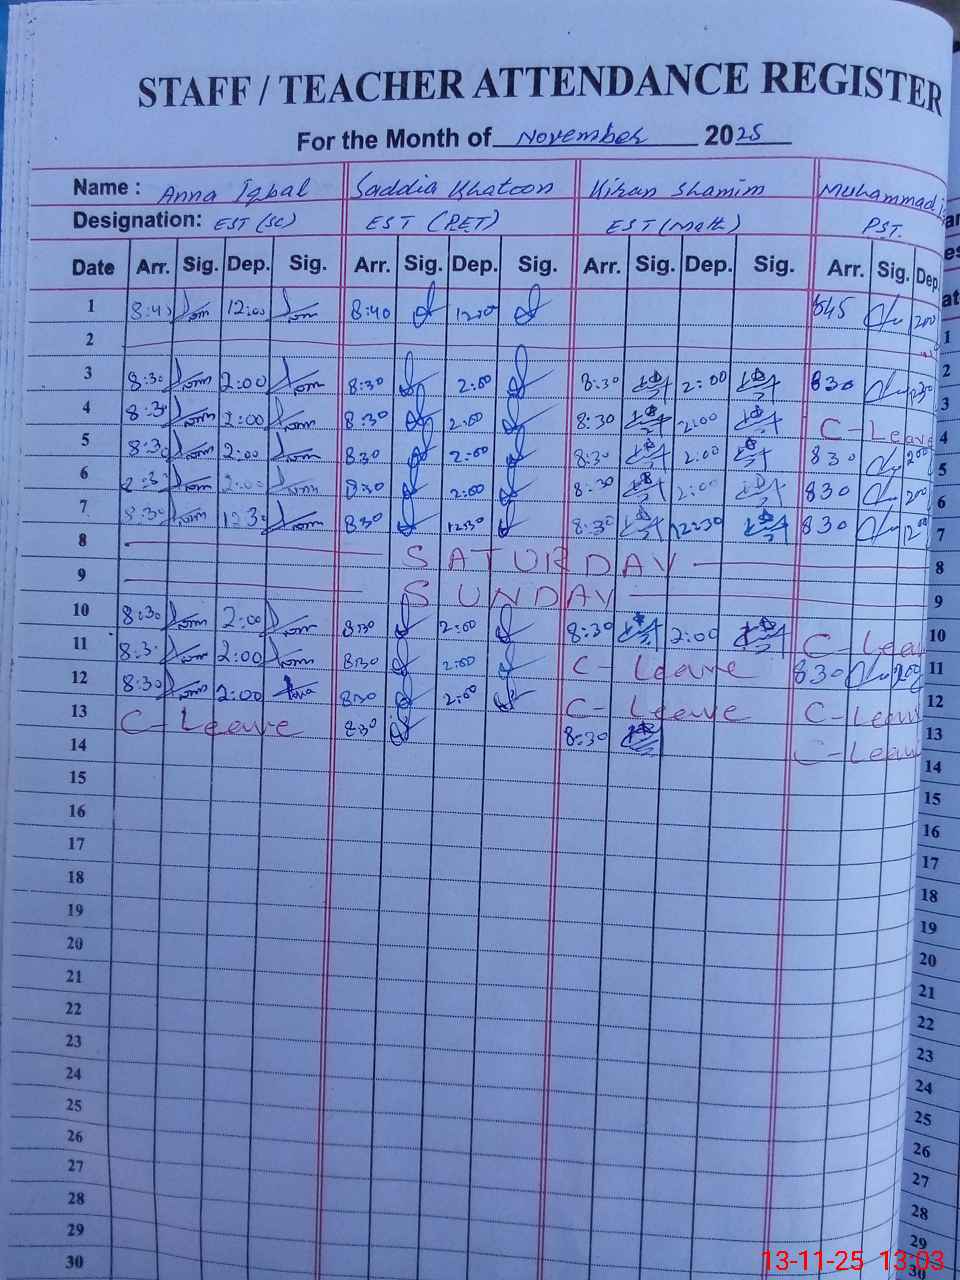 STAFF / TEACHER ATTENDANCE REGISTER
For the Month of November 2025
Name : Anna Iqbal Saddia Khatoon Kiran Shamim Muhammad
Designation: EST (SC) EST (PET) EST (Math) PST.
Date Arr. Sig. Dep. Sig. Arr. Sig. Dep. Sig. Arr. Sig. Dep. Sig. Arr. Sig. Dep.
1 8:40 12:00 8:40 12:00 845 1200 1
2 2
3 8:30 2:00 8:30 2:00 8:30 2:00 830 1230 3
4 8:30 2:00 8:30 2:00 8:30 2:00 C-Leave 4
5 8:30 2:00 830 2:00 8:30 2:00 830 200 5
6 8:30 2:00 830 2:00 8:30 2:00 830 200 6
7 8:30 1230 830 12:30 8:30 12:30 830 7
8 SATURDAY 8
9 SUNDAY 9
10 8:30 2:00 830 2:00 8:30 2:00 C-Leav 10
11 8:3 2:00 830 2:00 C-Leave 830 200 11
12 8:30 2:00 830 2:00 C-Leave C-Leave 12
13 C-Leave 830 8:30 C-Leave 13
14 14
15 15
16 16
17 17
18 18
19 19
20 20
21 21
22 22
23 23
24 24
25 25
26 26
27 27
28 28
29 29
30 30
13-11-25 13:03